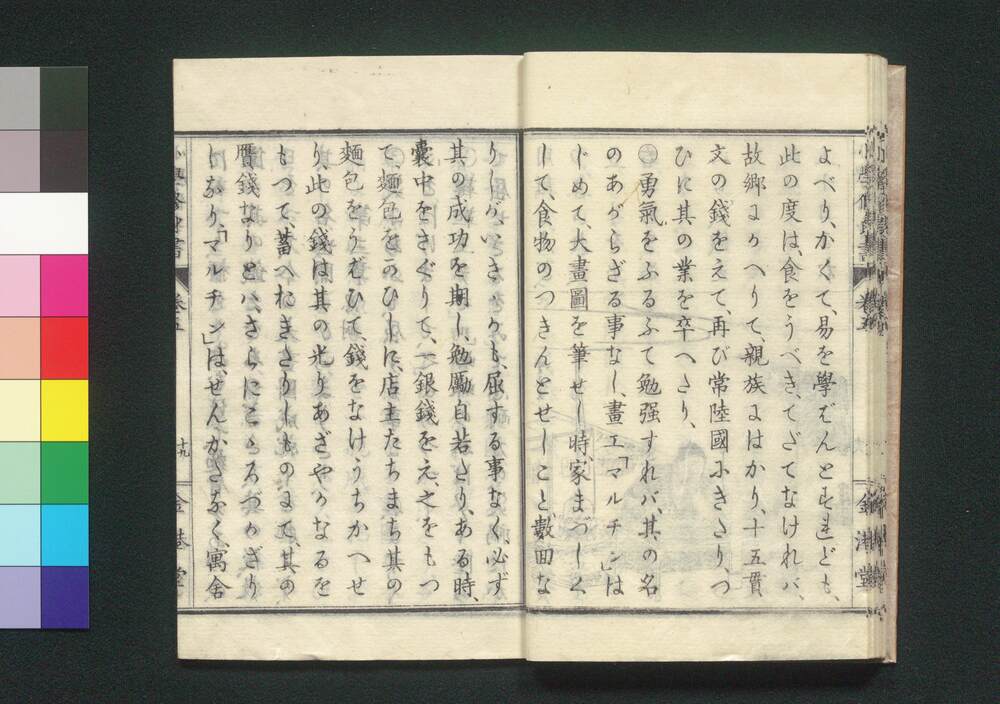 よべり、かくて、易を學ばんとすれども、
此の度は、食をうべき、てだてなければ、
故郷にかへりて、親族にはかり、十五貫
文の錢をえて、再び常陸國にきたり、つ
ひに其の業を卒へたり、
勇氣をふるふて勉强すれバ、其の名
のあがらざる事なし、畫工「マルチン」は
じめて、大畫圖を筆せし時、家まづしく
して、食物のつきんとせしこと、數回な
りしが、いさゝかも、屈する事なく、必ず
其の成功を期し、勉勵自若たり、ある時、
囊中をさぐりて、一銀錢をえ、之をもつ
て、麵包をかひしに、店主たちまち其の
麵包をうばひて、錢をなけうちかへせ
り、此の錢は其の光りあざやかなるを
もつて、蓄へおきたりしものにて、其の
贋錢なりとハ、さらにこゝろづかざり
しなり、「マルチン」は、せんかたなく、寓舍
小學修身書
卷五
十九
金港堂